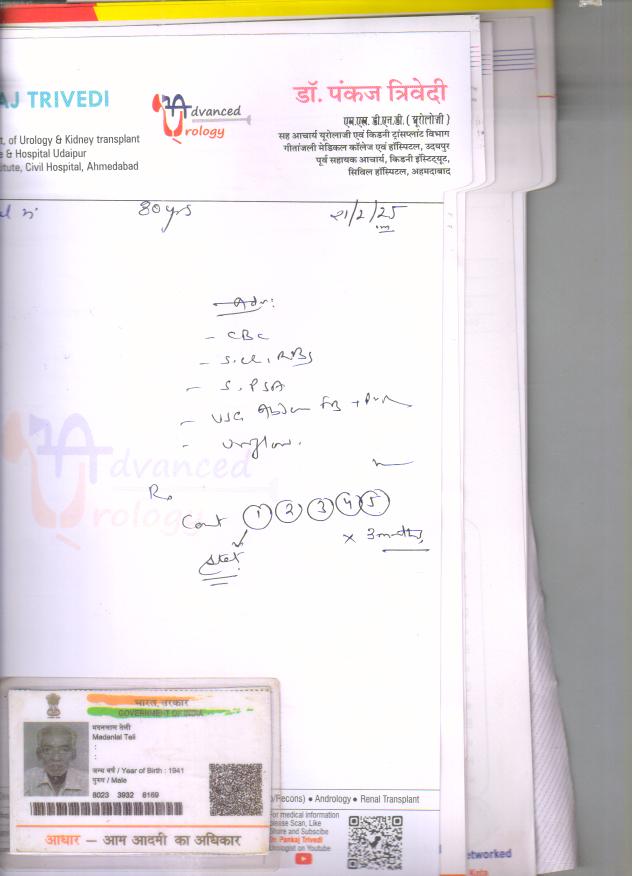 AJ TRIVEDI
Advanced
Urology
डॉ. पंकज त्रिवेदी
एम.एस. डी.एन.बी. ( यूरोलॉजी )
सह आचार्य यूरोलॉजी एवं किडनी ट्रांसप्लांट विभाग
गीतांजली मेडिकल कॉलेज एवं हॉस्पिटल, उदयपुर
पूर्व सहायक आचार्य, किडनी इंस्टिट्यूट,
सिविल हॉस्पिटल, अहमदाबाद
t. of Urology & Kidney transplant
e & Hospital Udaipur
itute, Civil Hospital, Ahmedabad
80 yrs
21/2/25
Adv:
- CBC
- S. Cr, RBS
- S. PSA
- USG Abdomen FB + PVR
- Uroflow.
Advanced
Urology
Rx
Cont 1 2 3 4 5
x 3 months
भारत सरकार
GOVERNMENT OF INDIA
मदनलाल तेली
Madanlal Teli
जन्म वर्ष / Year of Birth : 1941
पुरुष / Male
8023 3932 8169
आधार – आम आदमी का अधिकार
/Fecons) • Andrology • Renal Transplant
For medical information
please Scan, Like
Share and Subscibe
Dr. Pankaj Trivedi
Urologist on Youtube
etworked
Kota